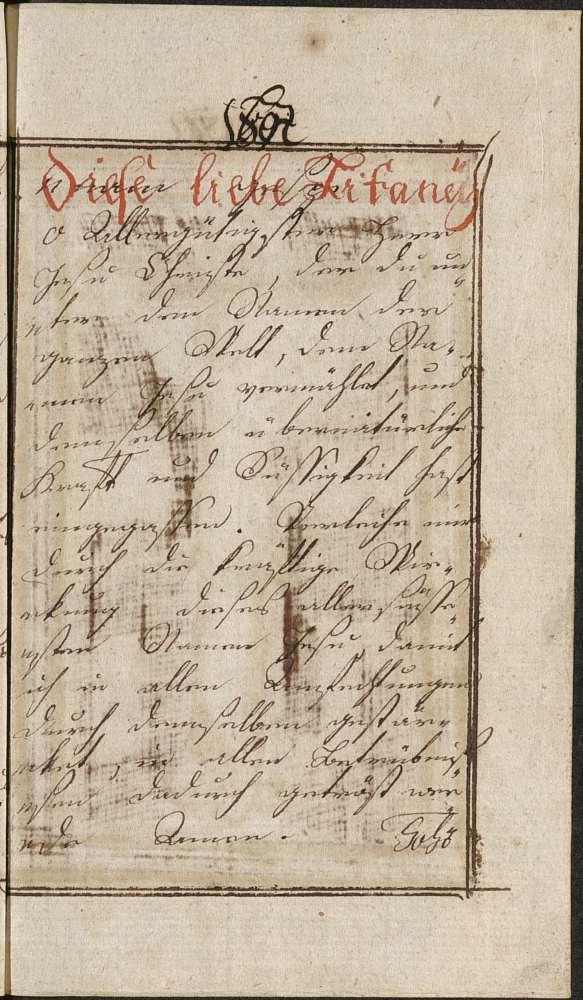 Diese liebe Litaney
O Allergütigster Herr
Jesu Christe, der du un
nter dem Namen der
ganzen Welt, dem Na¬
nmen Jesu vermählet, und
demselben übernatürliche
Krafft und Süssigkeit hast
eingegossen. Verleihe mir
durch die kräfftige Wir¬
rkung dieses allersüsse
esten Namen Jesu, damit
ich in allen Anfechtungen
durch demselben gestär¬
rket, in allen Betrübniss
nssen dadurch getröst wer
rde Amen.